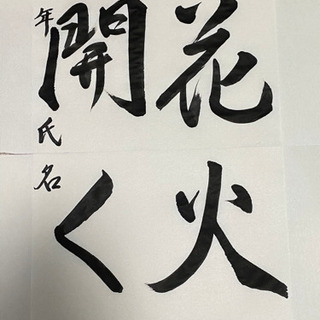 花火
開く
年氏名